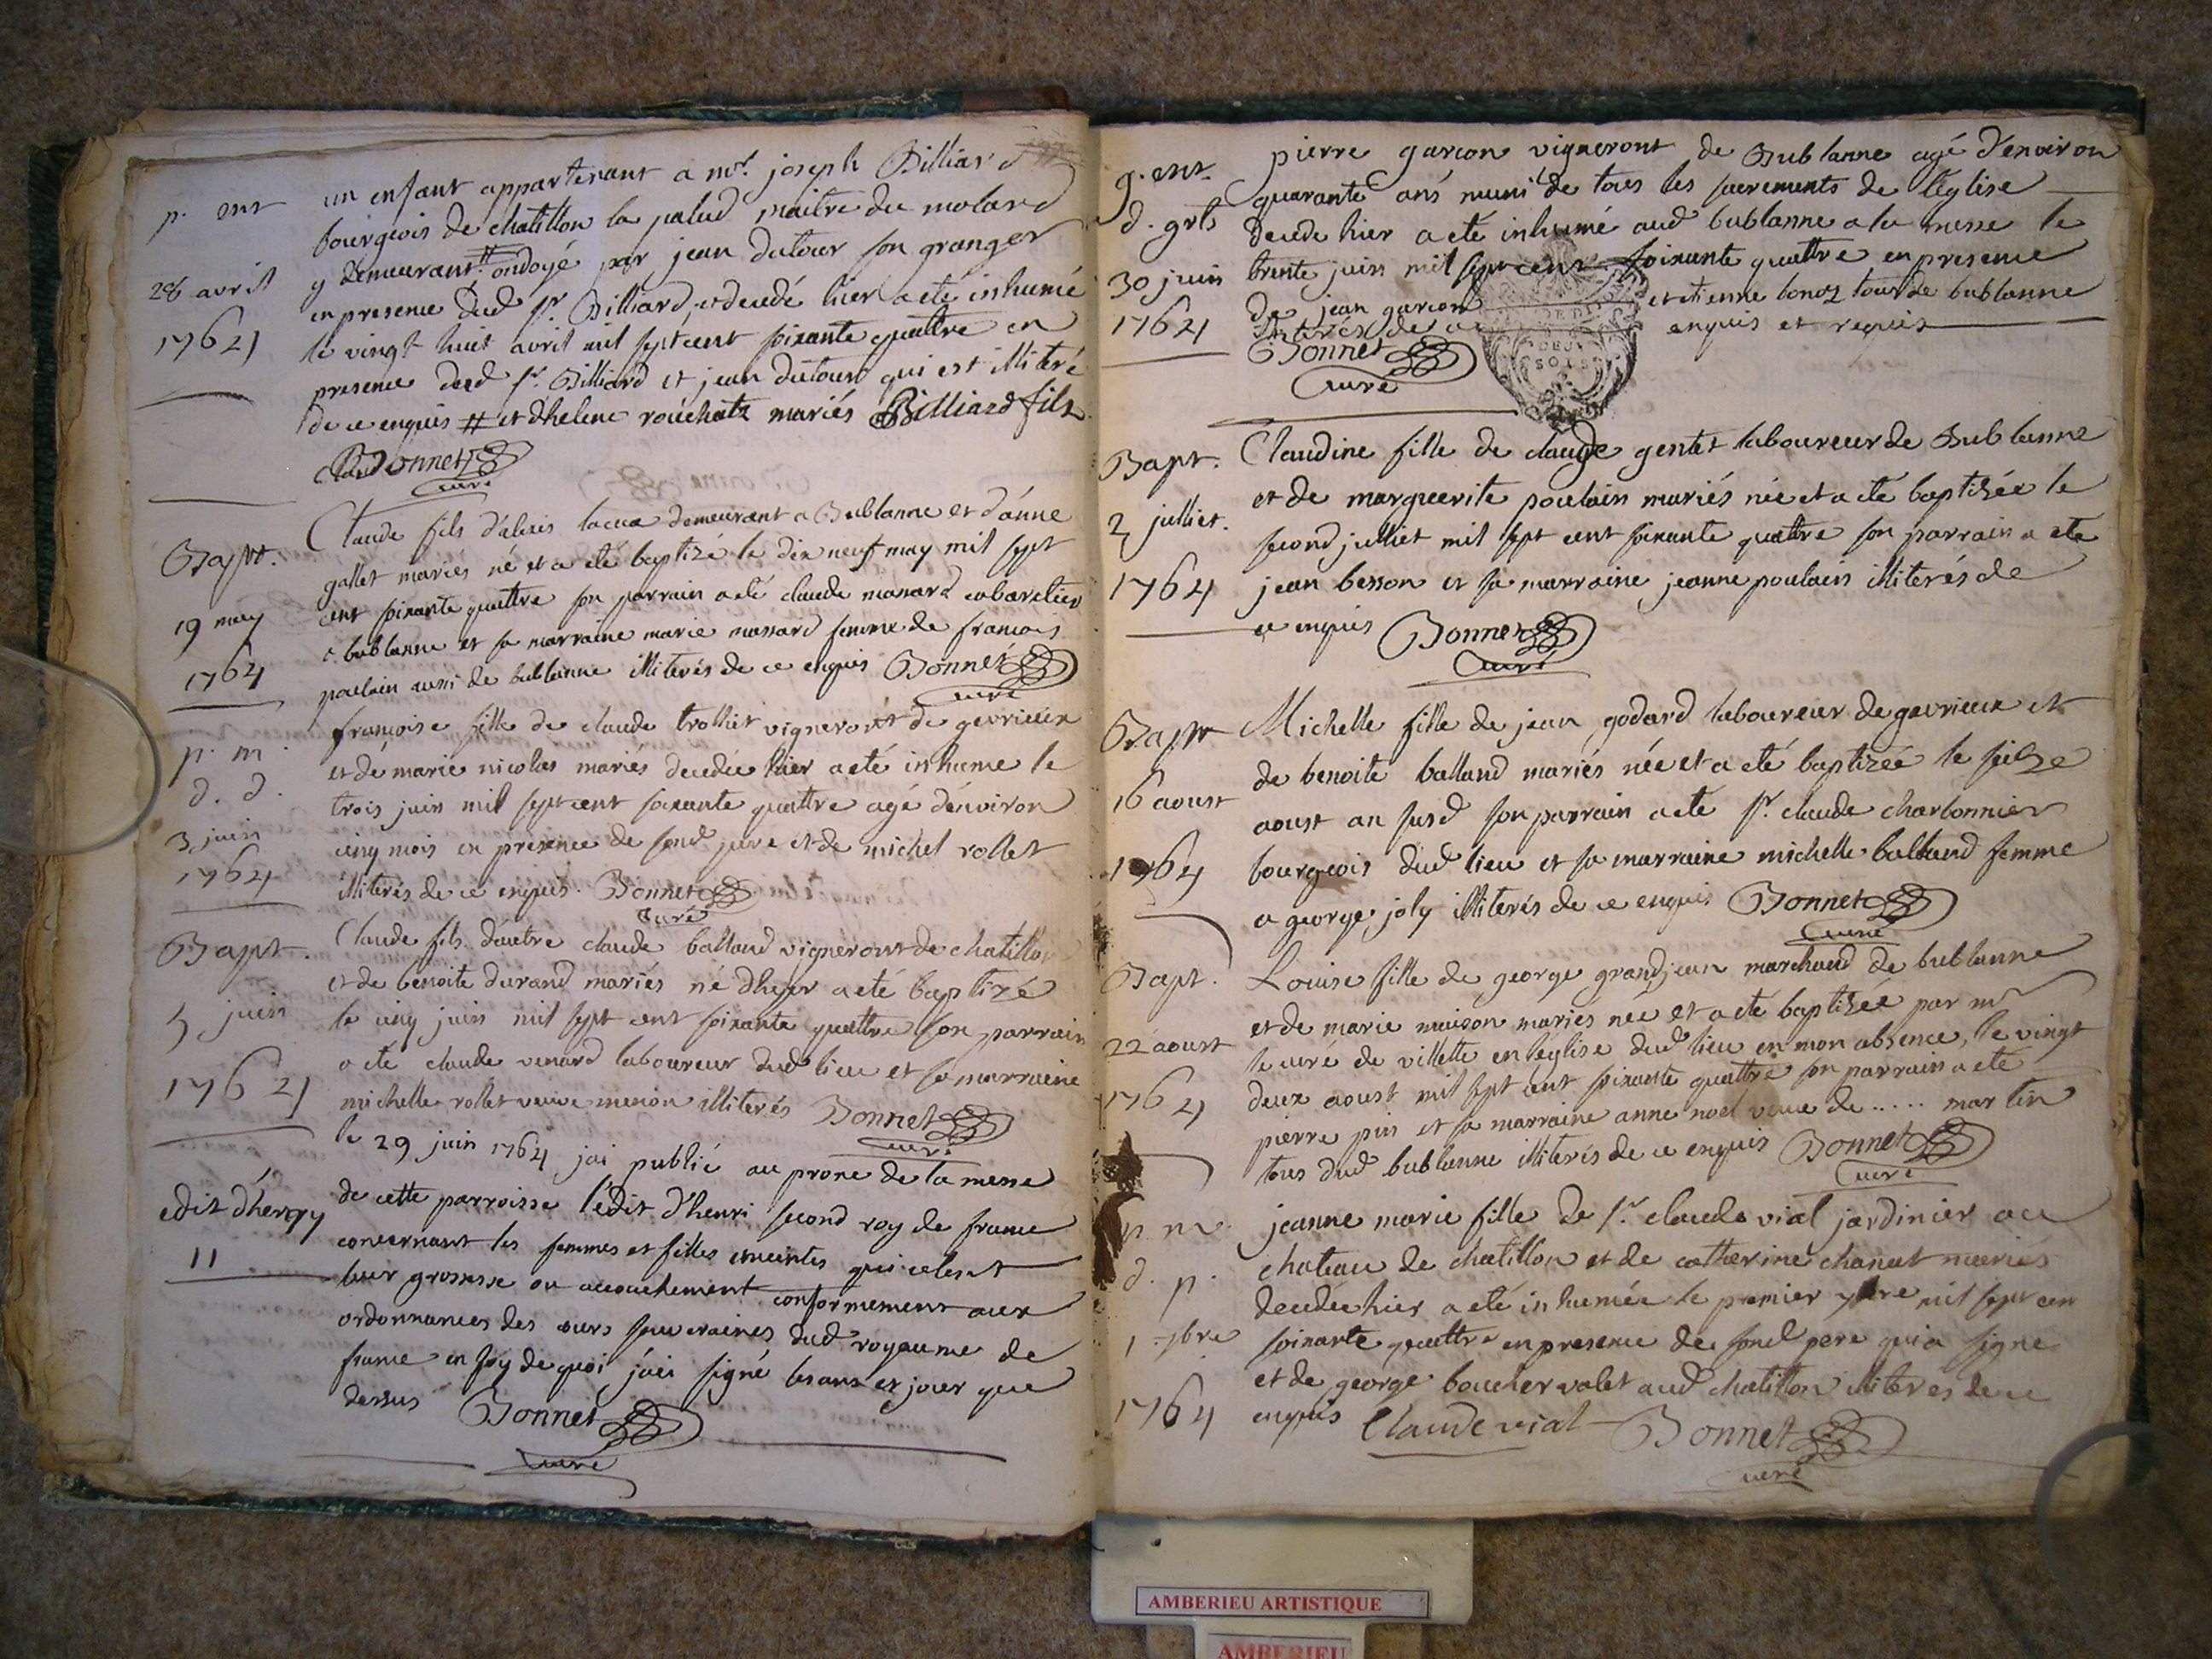 p. ent
28 avril
1764
un enfant appartenant a mr. joseph Billiard
bourgeois de chatillon la palud maitre du molard
y demeurant # ondoyé par jean dutour son granger
en presence dud sr. Billiard, et decedé hier a eté inhumé
le vingt huit avril mil sept cent soixante quattre en
presence dud sr. Billiard et jean dutour qui est illiteré
de ce enquis # et d'helene rouchatz mariés Billiard fils
Bonnet
curé
Bapt.
19 may
1764
Claude fils d'alexis lacua demeurant a Bublanne et d'anne
gallet mariés né et a eté baptizé le dix neuf may mil sept
cent soixante quattre son parrain a eté claude massard cabaretier
a bublanne et sa marraine marie massard femme de francois
poulain aussi de bublanne illiterés de ce enquis Bonnet
curé
p. m.
d. d.
3 juin
1764
françoise fille de claude trolliet vigneront de gevrieux
et de marie nicolas mariés decedée hier a eté inhume le
trois juin mil sept cent soixante quattre agé d'environ
cinq mois en presence de sond pere et de michel rollet
illiterés de ce enquis. Bonnet
curé
Bapt.
5 juin
1764
Claude fils d'autre claude balland vigneront de chatillon
et de benoite durand mariés né d'hyer a eté baptizé
le cinq juin mil sept cent soixante quattre son parrain
a eté claude venard laboureur dud lieu et sa marraine
michelle rollet veuve merion illiterés Bonnet
curé
edit d'henry
11
le 29 juin 1764 jai publié au prone de la messe
de cette parroisse l'edit d'henri second roy de france
concernant les femmes et filles enceintes qui celent
leur grossesse ou accouchement conformement aux
ordonnances des cours souveraines dud royaume de
france en foy de quoi j'ai signé les ans et jour que
dessus Bonnet
curé
g. ent.
d. grls
30 juin
1764
pierre garcon vigneront de Bublanne agé d'environ
quarante ans muni de tous les sacrements de l'église
decede hier a eté inhumé aud bublanne a la messe le
trente juin mil sept cent soixante quattre en presence
de jean garcon et etienne tour de bublanne
illiterés de ce enquis et requis
Bonnet
curé
Bapt.
2 julliet.
1764
Claudine fille de claude gentet laboureur de Bublanne
et de marguerite poulain mariés née et a eté baptizée le
second julliet mil sept cent soixante quattre son parrain a eté
jean besson et sa marraine jeanne poulain illiterés de
ce enquis Bonnet
curé
Bapt
16 aoust
1764
Michelle fille de jean godard laboureur de gevrieux et
de benoite balland mariés née et a eté baptizée le seize
aoust an susd son parrain a eté sr. claude charbonnier
bourgeois dud lieu et sa marraine michelle balland femme
a george joly illiterés de ce enquis Bonnet
curé
Bapt.
22 aoust
1764
Louise fille de george grandjean marchand de bublanne
et de marie maison mariés née et a eté baptizée par mr
le curé de villette en l'eglise dud lieu en mon absence, le vingt
deux aoust mil sept cent soixante quattre son parrain a eté
pierre pin et sa marraine anne noel veuve de ..... martin
tous dud bublanne illiterés de ce enquis Bonnet
curé
p. m.
d. p.
1 7bre
1764
jeanne marie fille de sr. claude vial jardinier au
chateau de chatillon et de catherine chanut mariés
decedée hier a eté inhumée le premier 7bre mil sept cen
soixante quattre en presence de sond pere qui a signe
et de george boucher valet aud chatillon illiteres de ce
enquis Claude vial Bonnet
curé
AMBERIEU ARTISTIQUE
AMBERIEU